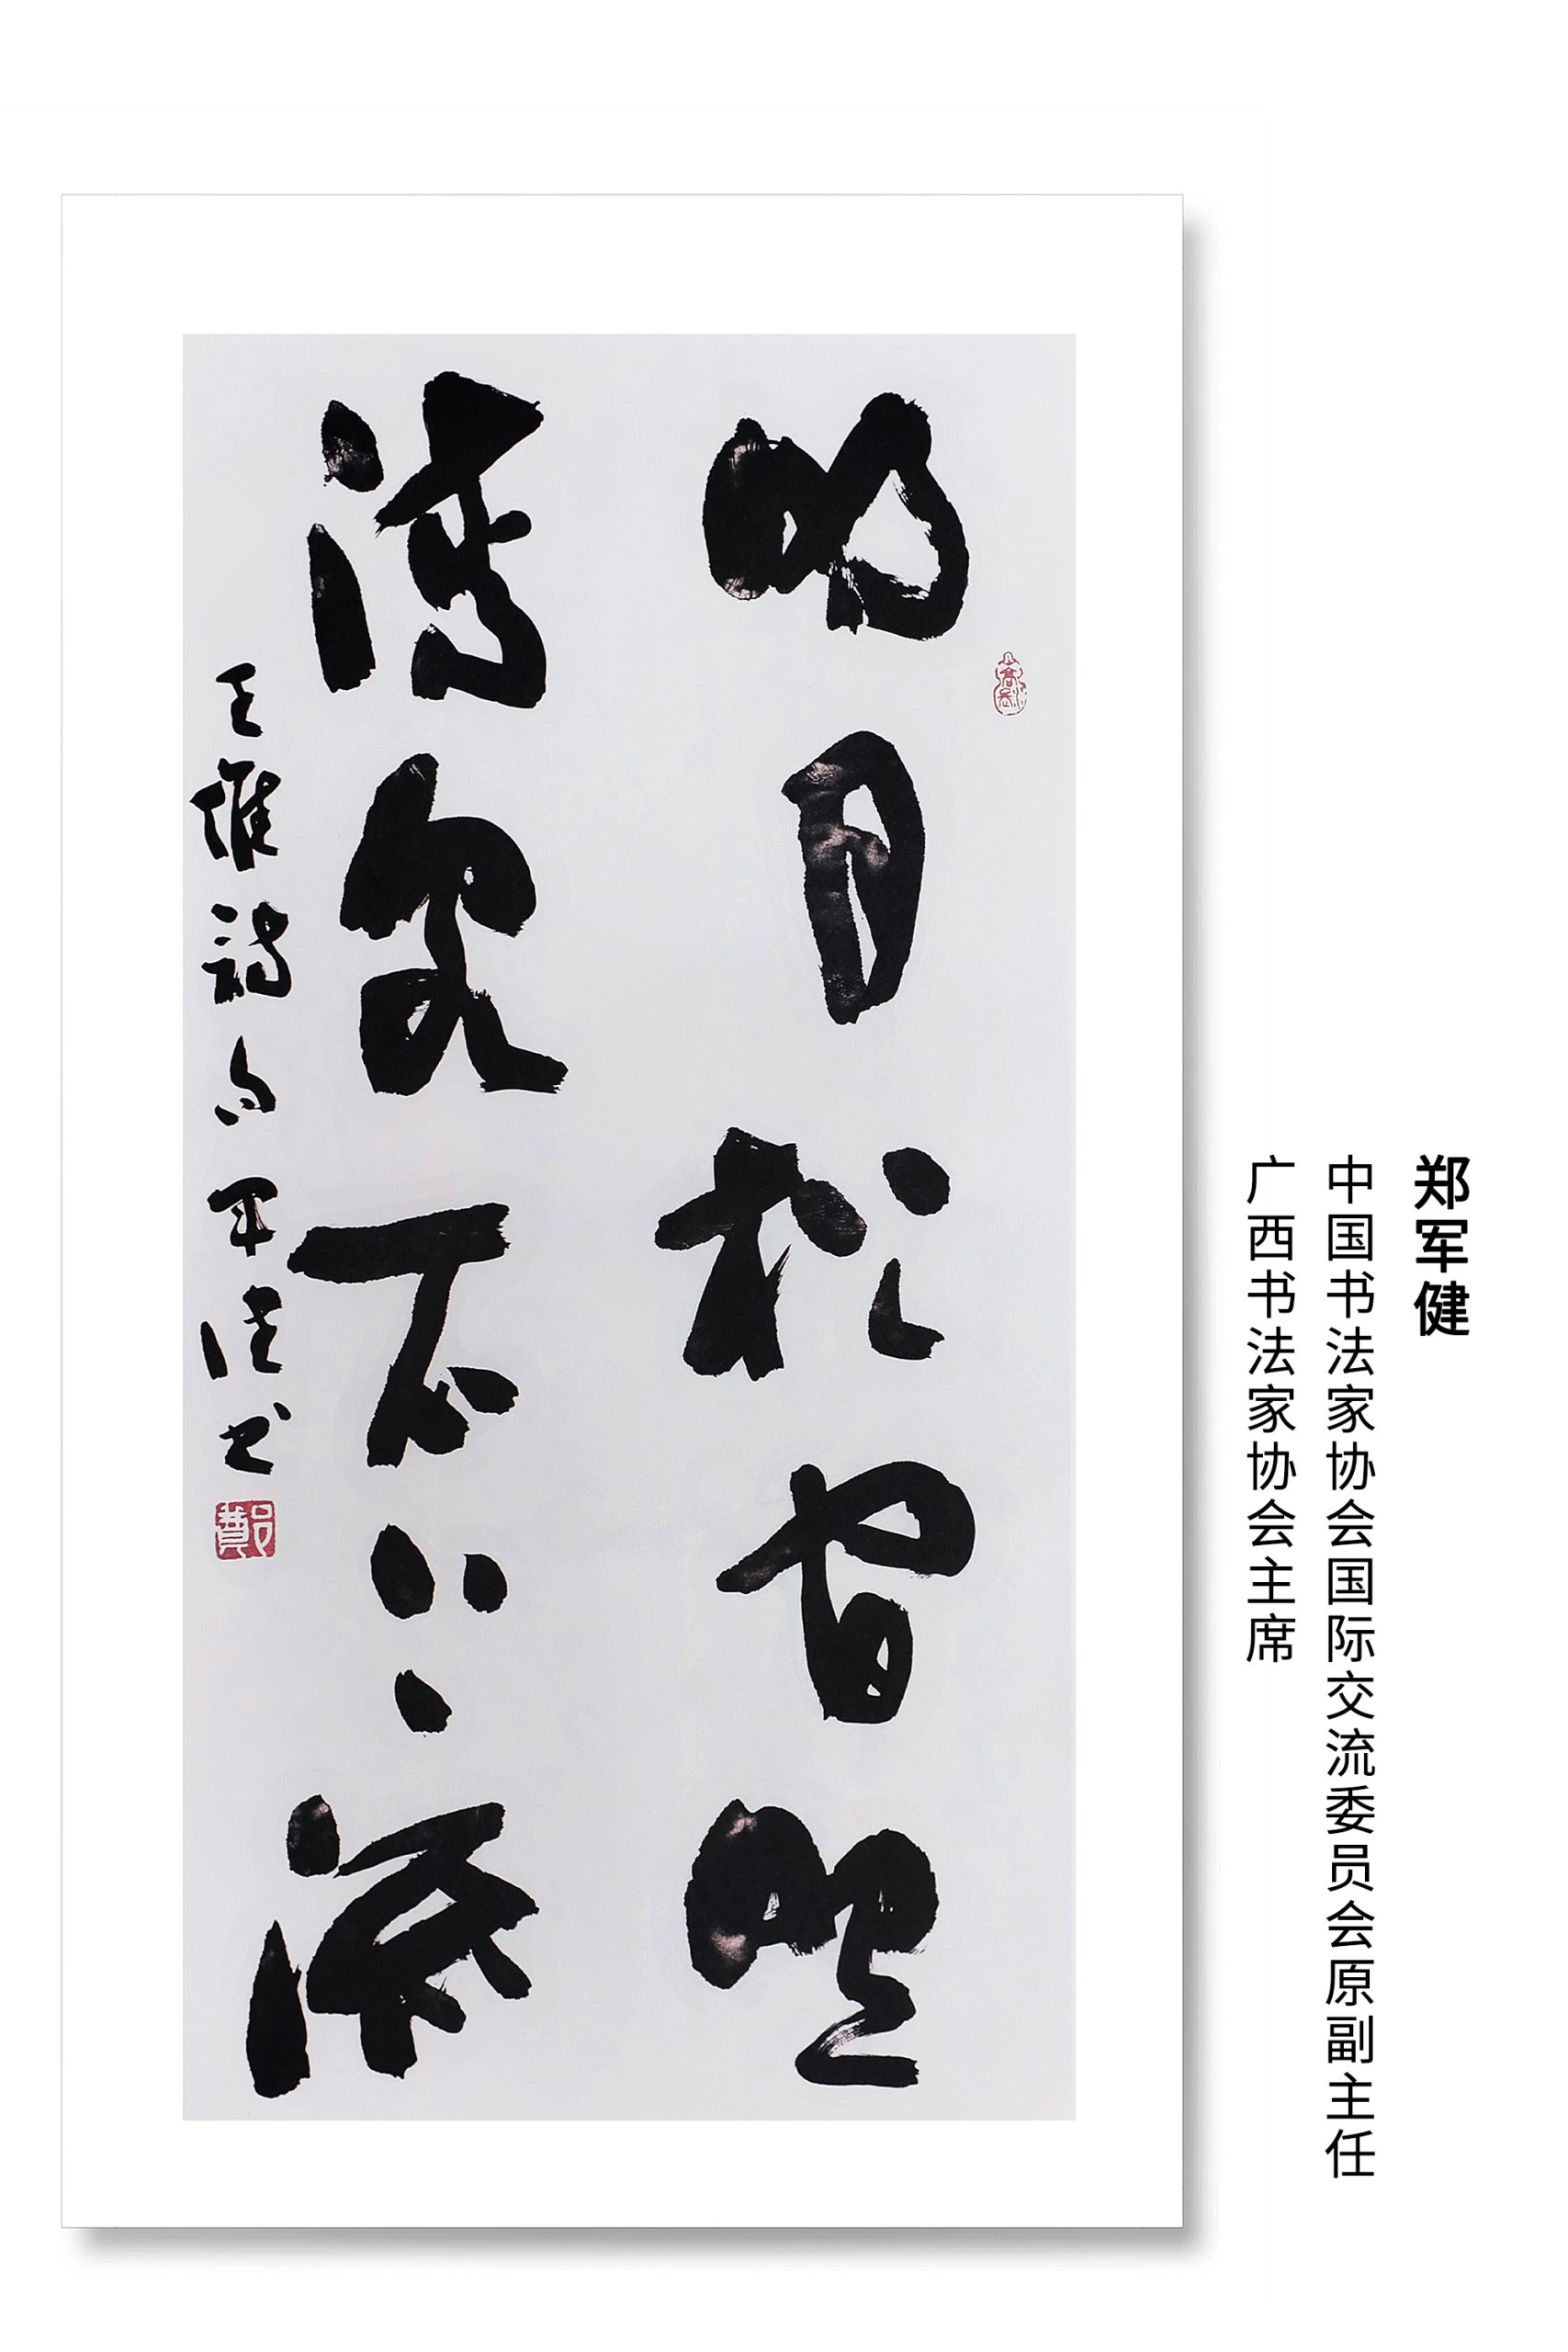 郑军健
中国书法家协会国际交流委员会原副主任
广西书法家协会主席
明月松間照
清泉石上流
王維詩句軍健书
鄭